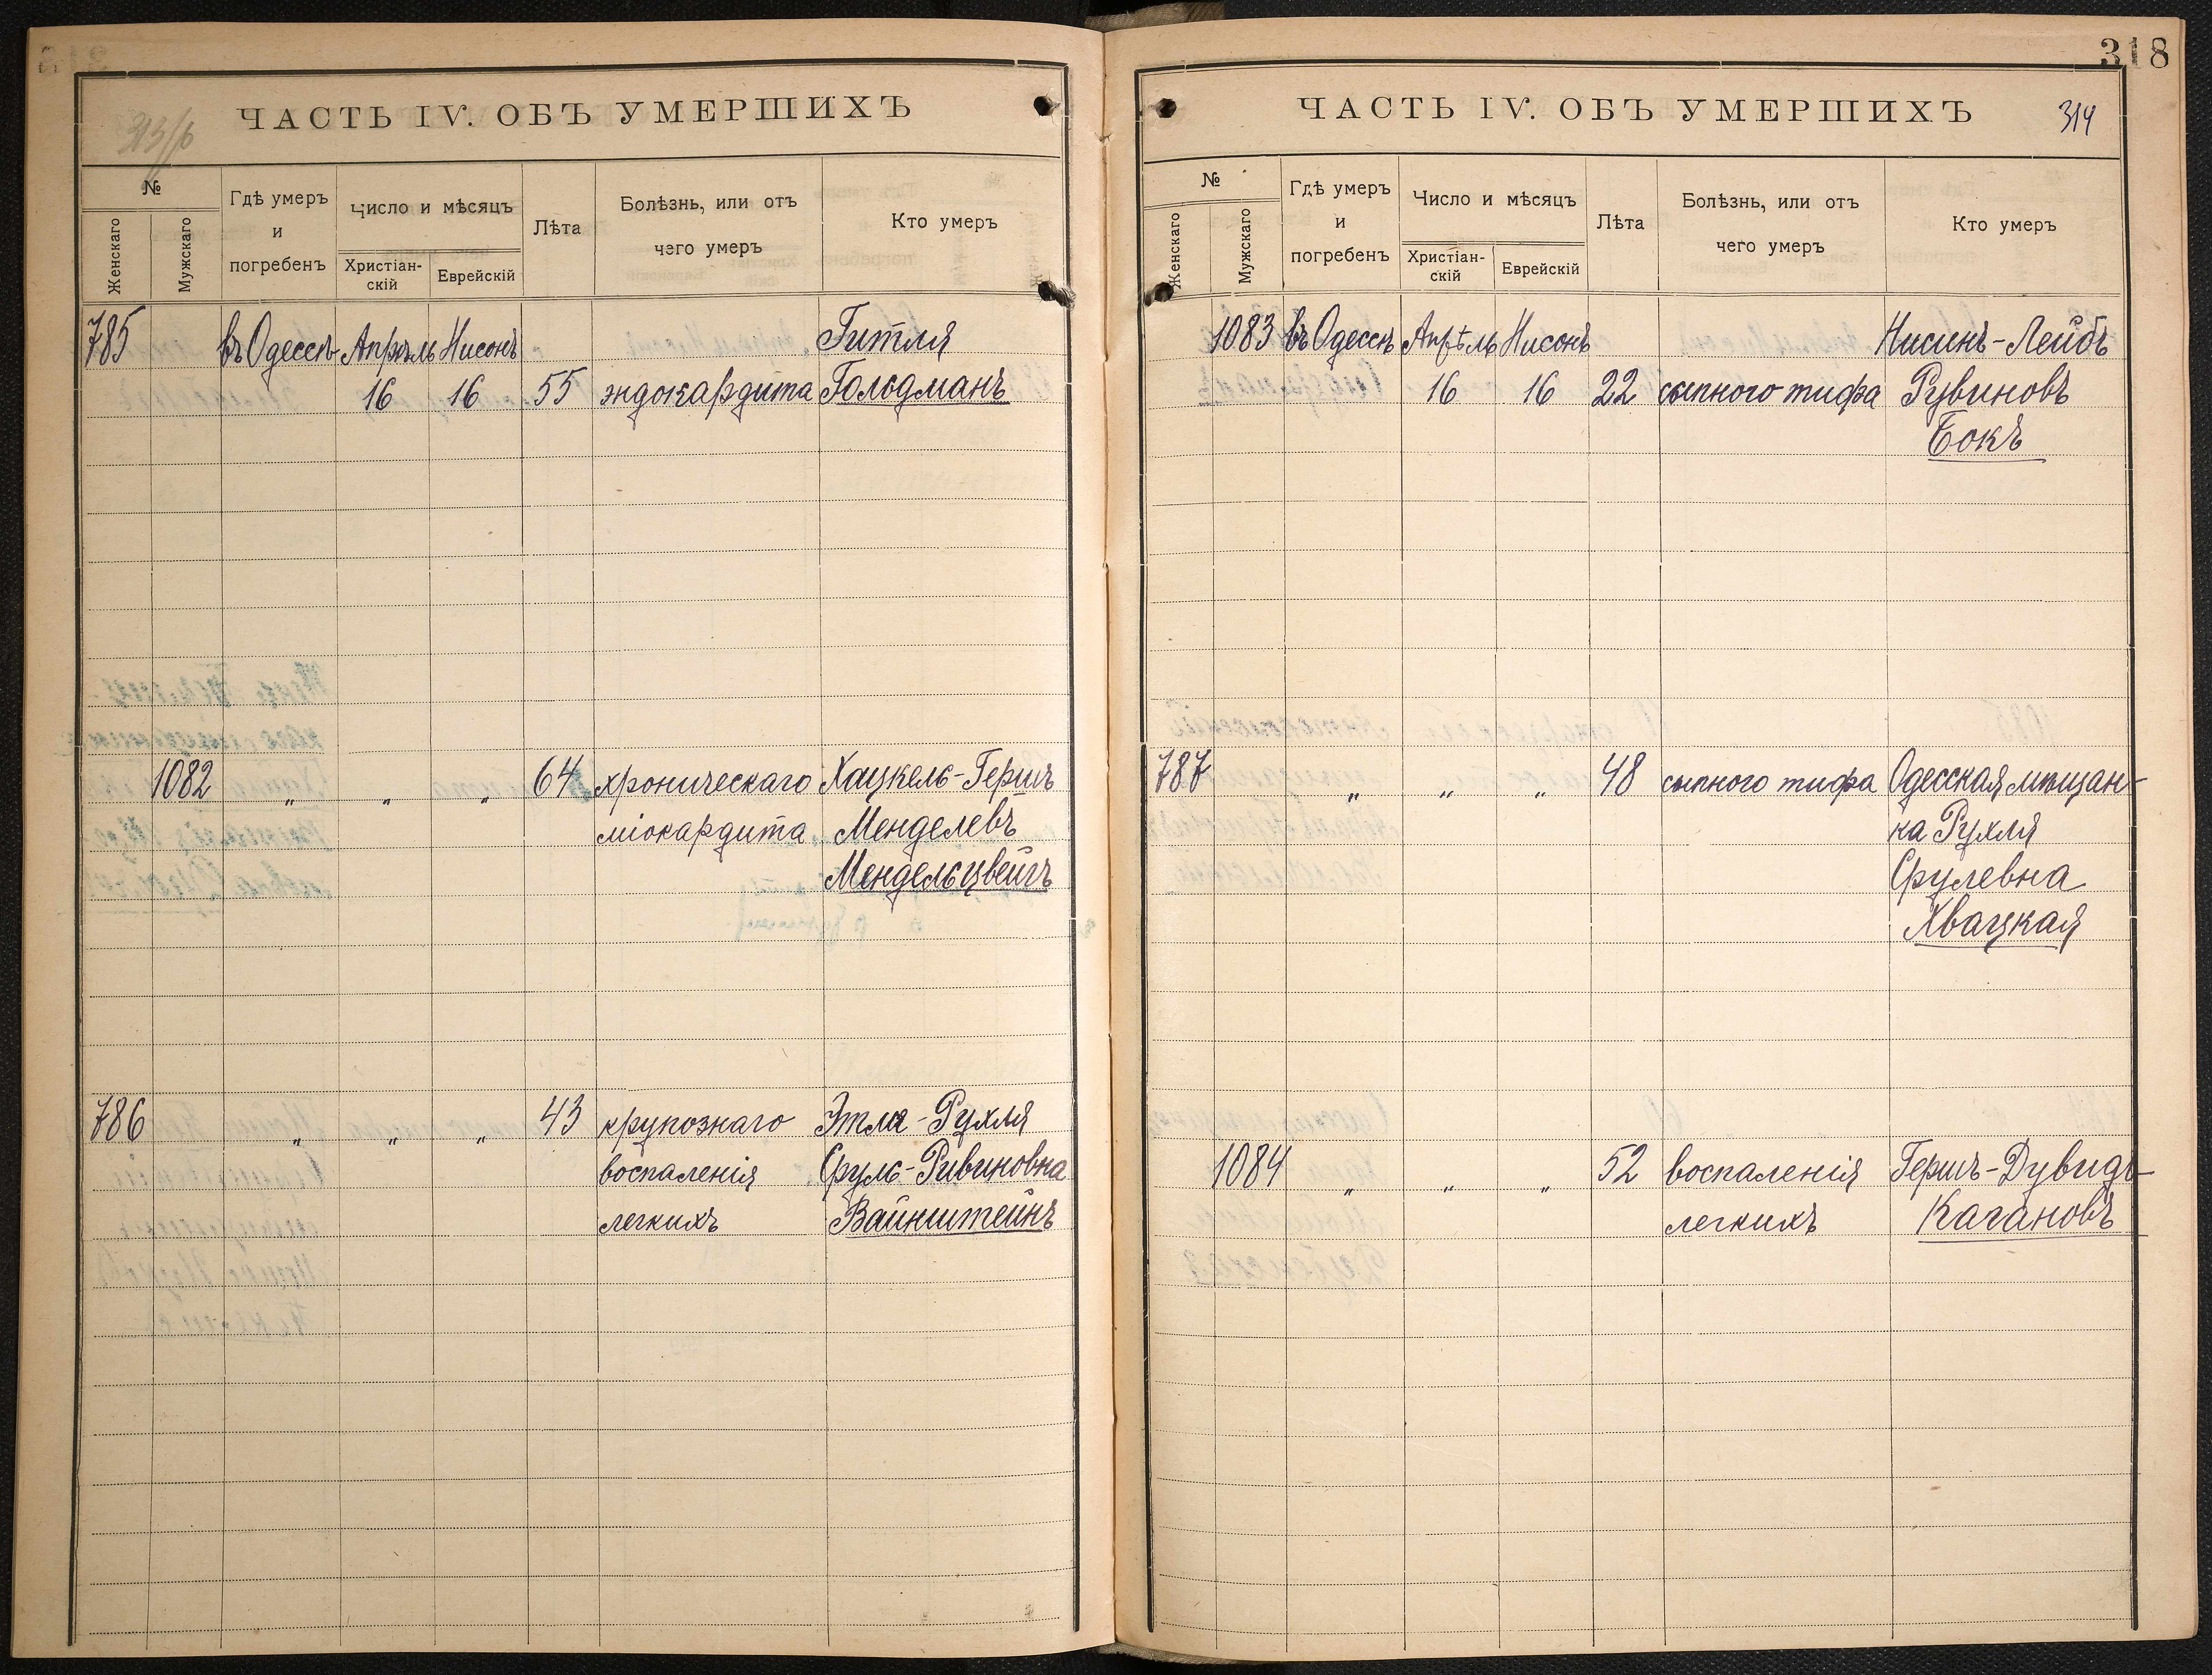 318
ЧАСТЬ IV. ОБЪ УМЕРШИХЪ
313/б
№
Женскаго
Мужскаго
Гдѣ умеръ
и
погребенъ
Число и мѣсяцъ
Христіан-
скій
Еврейскій
Лѣта
Болѣзнь, или отъ
чего умеръ
Кто умеръ
785 въ Одессѣ Апрѣль Нисонъ Гитля
16 16 55 эндокардита Гольдманъ
1082 „ „ „ 64 хроническаго Хацкель-Гершъ
міокардита Менделевъ
Мендельцвейгъ
786 „ „ „ 43 крупознаго Этля-Рухля
воспаленія Сруль-Ривиновна
легкихъ Вайнштейнъ
ЧАСТЬ IV. ОБЪ УМЕРШИХЪ
314
№
Женскаго
Мужскаго
Гдѣ умеръ
и
погребенъ
Число и мѣсяцъ
Христіан-
скій
Еврейскій
Лѣта
Болѣзнь, или отъ
чего умеръ
Кто умеръ
1083 въ Одессѣ Апрѣль Нисонъ Нисинъ-Лейбъ
16 16 22 сыпного тифа Рувиновъ
Бокъ
787 „ „ „ 48 сыпного тифа Одесская мѣщан-
ка Рухля
Срулевна
Хвацкая
1084 „ „ „ 52 воспаленія Гершъ-Дувидъ
легкихъ Кагановъ